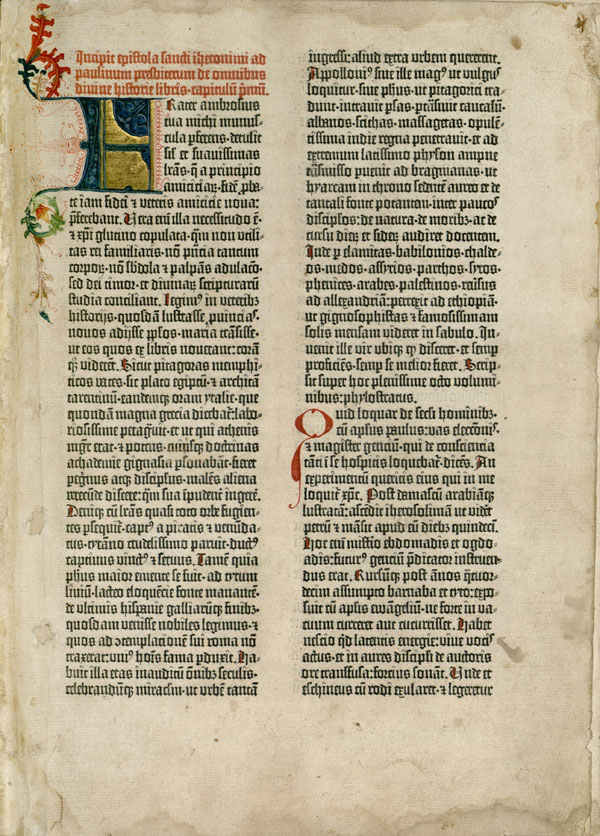 Incipit epistola sancti iheronimi ad
paulinum presbiterum de omnibus
divine historie libris. capitulū pmū.
Frater ambrosius
tua michi munus-
cula pferens. detulit
sil et suavissimas
lrās. q̄ a principio
amiciciaꝝ. fidē pba-
te iam fidei ⁊ veteris amicicie nova:
pferebant. Vera eni̅ illa necessitudo ē.
⁊ xpi̅ glutino copulata. qm̄ non utili-
tas rei familiaris. nō pn̄cia tantum
corpoꝝ. nō sbdola ⁊ palpās adulacō.
sed dei timor. et divinaꝝ scripturarū
studia conciliant. Legim⁹ in veterib⁊
historijs. quosdā lustrasse ꝓvincias.
novos adijsse ppłos. maria trāsisse.
ut eos quos ex libris noverant: corā
qꝫ viderēt. Sicut pitagoras memphi-
ticos vates. sic plato egiptū. ⁊ architā
tarentinū. eandemqꝫ oram ytalie. que
quondā magna grecia dicebat̄: labo-
riosissime peragravit. et ut qui athenis
mgr̄ erat. ⁊ potens. cuiusqꝫ doctrinas
achademie gignasia psonabāt. fieret
peregrinus atqꝫ discipulus. malēs aliena
verecūde discere: q̄m sua īpudent̄ ingerē.
Deniqꝫ cū lrās quasi toto orbe fugien-
tes pseqt̄. capt⁹ a piratis ⁊ venūda-
tus. tyrāno crudelissimo paruit. duct⁹
captivus vinct⁹ ⁊ servus. Tamē quia
phus maior emente se fuit. ad tytum
liviū. lacteo eloquētie fonte manantē.
de ultimis hispanie galliarūqꝫ finib⁊.
quosdam venisse nobiles legimus. ⁊
quos ad ɔtemplationē sui roma nō
traxerat: uni⁹ hoīs fama pduxit. Ha-
buit illa etas inauditū oīnib⁊ seculis.
celebrandūqꝫ miraclm̄. ut urbē tantā
ingressi: aliud extra urbem quererent.
Appolloni⁹ sive ille mag⁹ ut vulgus
loquitur. sive phus. ut pitagorici tra-
dunt. intravit psas. ptn̄sivit caucasū.
albanos. scithas. massagetas. opulē-
tissima indie regna penetravit. et ad
extremum latissimo physon ampne
tn̄smisso pvenit ad bragmanas. ut
hyarcam in throno sedentē aureo et de
tantali fonte potantem. inter paucos
disciplos. de natura. de morib⁊. ac de
cursu dieꝝ et sideꝝ audiret docentem.
Inde p elamitas. babilonios. chalde-
os. medos. assyrios. parthos. syros.
phenices. arabes. palestinos. reūsus
ad allexandriā: perrexit ad ethiopiā.
ut gignosophistas ⁊ famosissimam
solis mensam videret in sabulo. In-
venit ille vir ubiqꝫ qd disceret. et semp
proficiēs. semp se melior fieret. Scrip-
sit super hoc plenissime octo volumi-
nibus: phylostratus.
Quid loquar de secli hominib⁊.
cū apłus paulus. vas electōis.
⁊ magister gentiū. qui de conscientia
tāti ī se hospitis loquebat̄. dicēs. An
experimentū queritis eius qui in me
loquit̄ xpc. Post damascū arabiāqꝫ
lustratā: ascēdit iherosolimā ut vidēt
petrū ⁊ mānsit apud eū dieb⁊ quindecī.
Hoc eni̅ misterio ebdomadis et ogdo-
adis: futur⁹ gentiū pdicator instruen-
dus erat. Rursūqꝫ post ānos q̄tuor-
decim assumpto barnaba et tyto: expo-
suit cū apłis ewangeliū. ne forte in va-
cuum curreret aut cucurrisset. Habet
nescio qd latentis energie: vive vocis
actus. et in aures discipli de auctoris
ore transfusa: forcius sonant. Unde et
eschineus cū rodi exularet. ⁊ legeretur